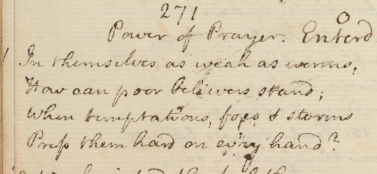 271
Power of Prayer. Enterd
1 In themselves as weak as worms,
How can poor believers stand;
When temptatns, foes & storms
Press them hard on ev'ry hand?